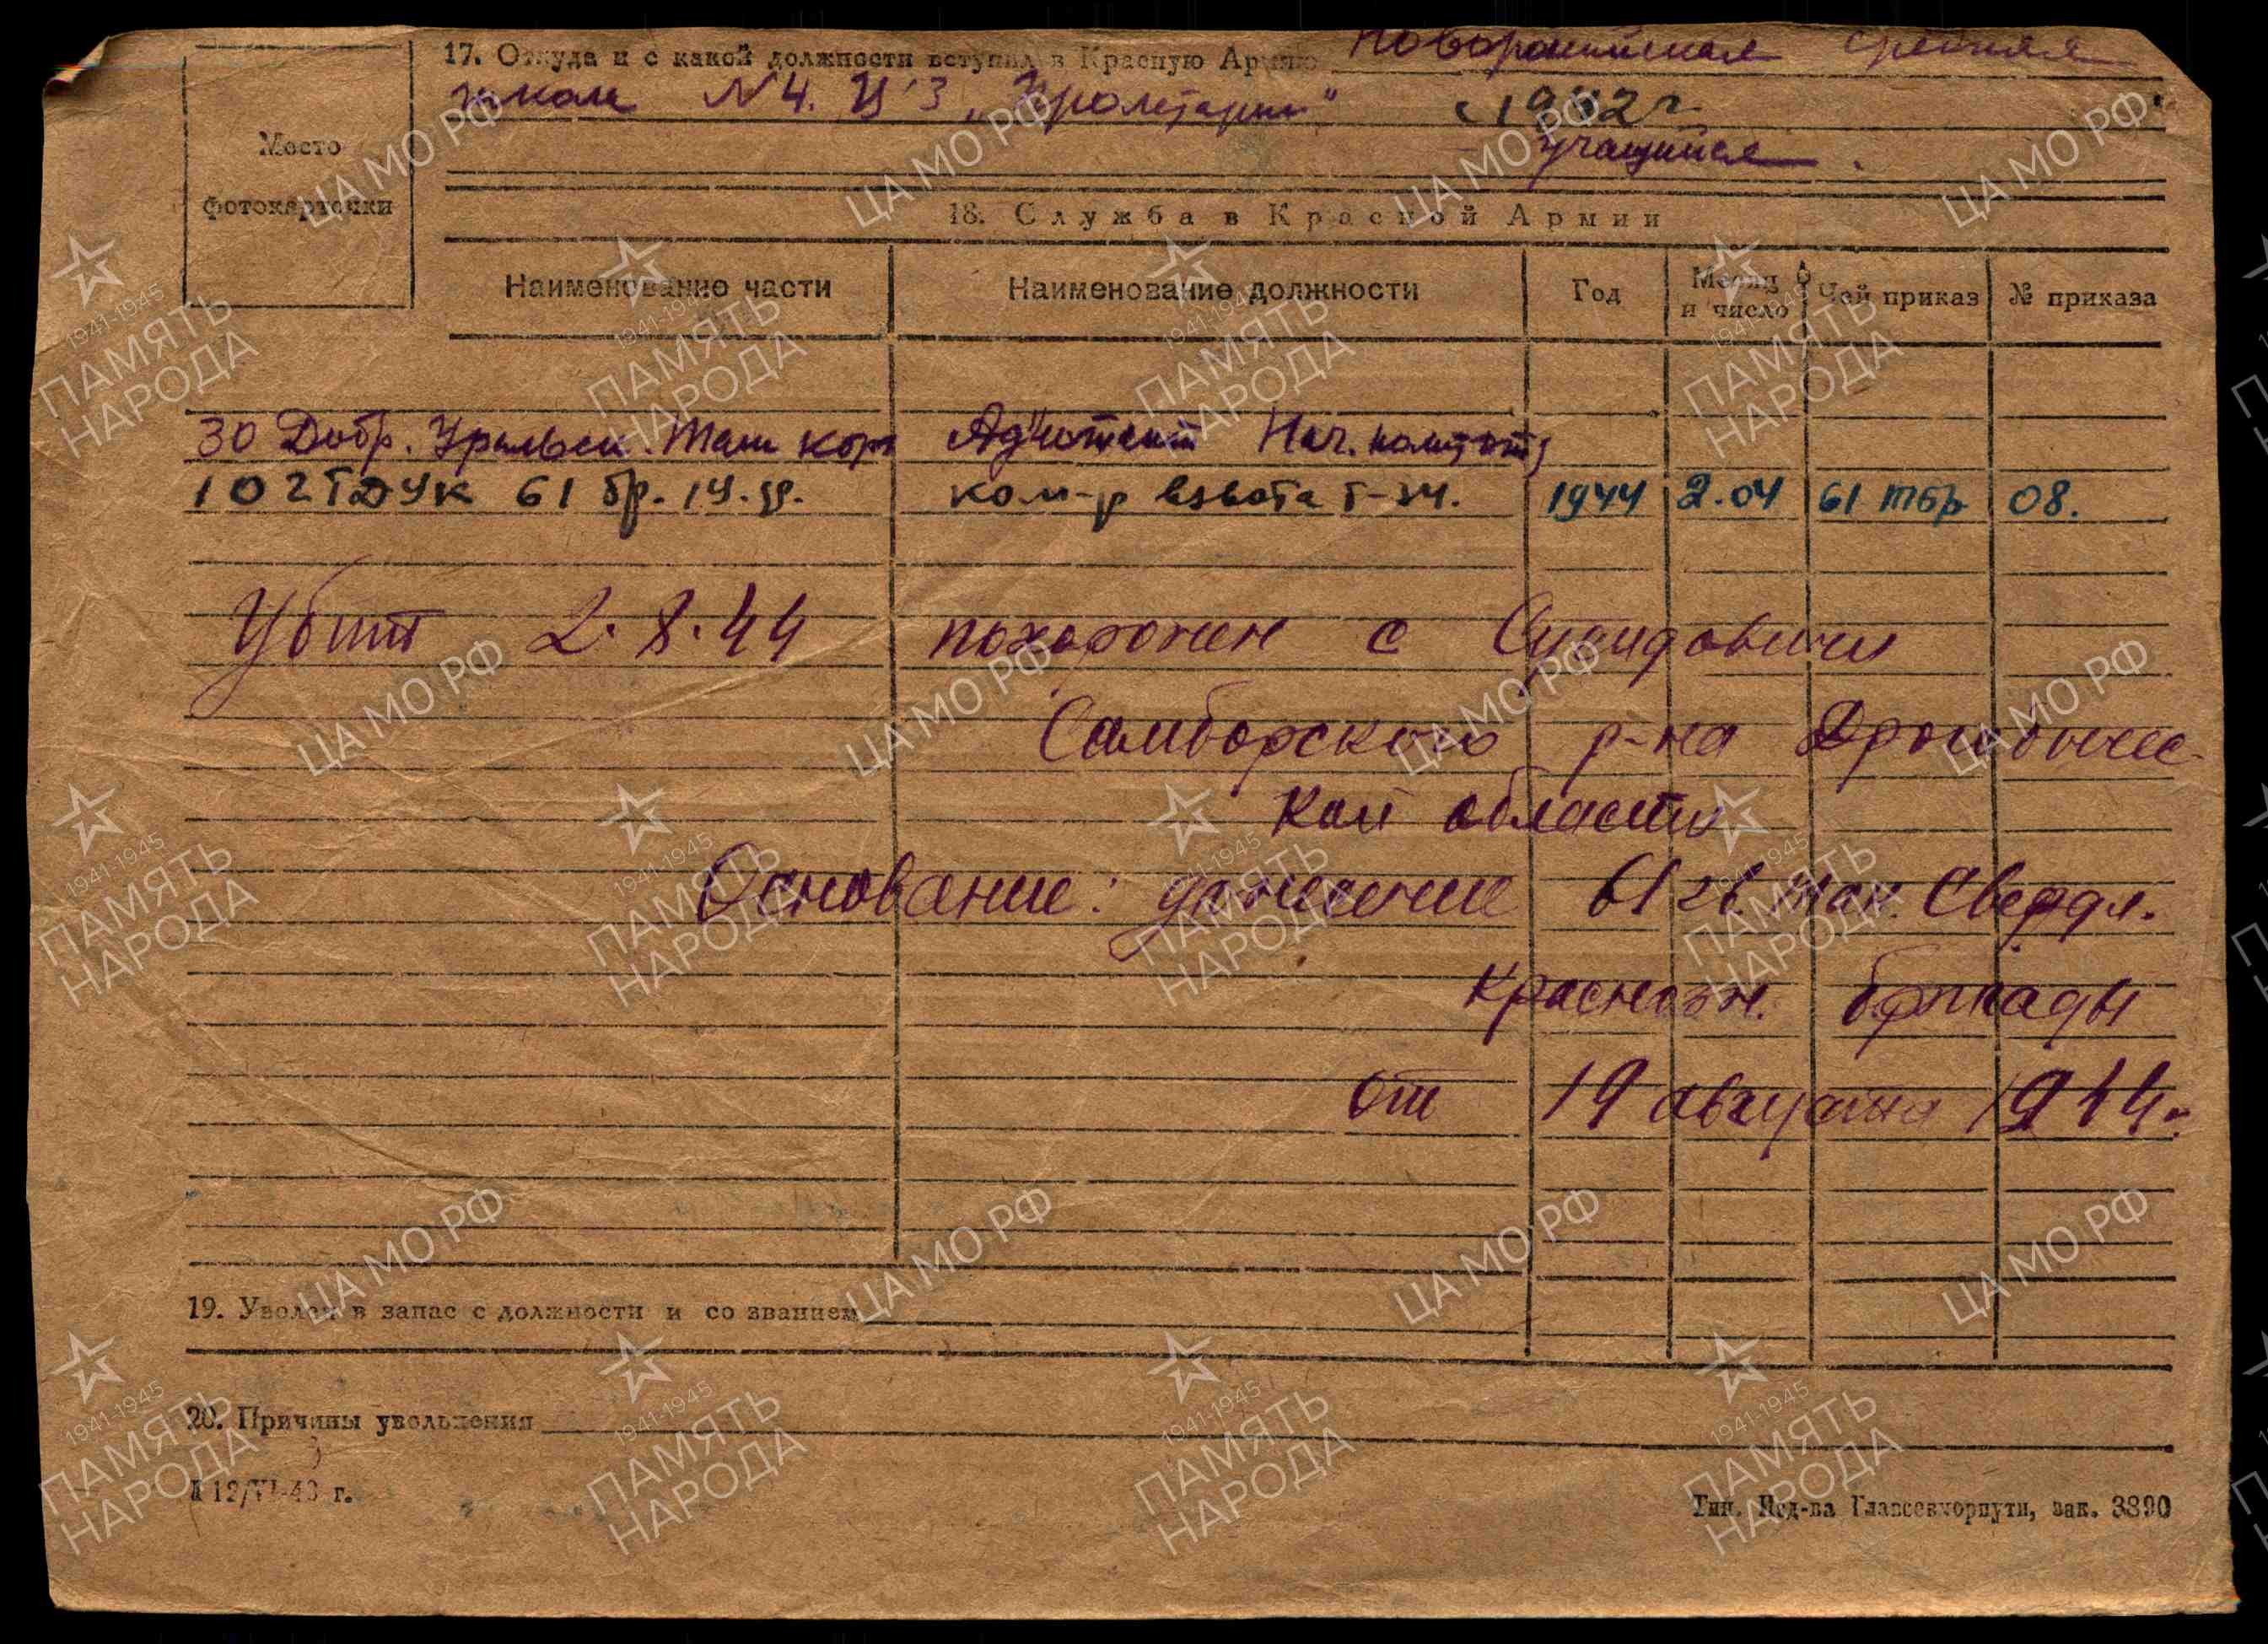 17. Откуда и с какой должности вступил в Красную Армию Новороссийская средняя
школа №4. Ц'З „Пролетарий" с 1942 г.
учащийся.
Место
фотокарточки
18. Служба в Красной Армии
Наименование части Наименование должности Год Месяц и число Чей приказ № приказа
30 Добр. Уральск. Танк корп Адъютант Нач. политотд
10 гТДУК 61 бр. 14. ф. ком-р взвота Т-34. 1944 2.04 61 тбр 08.
Убит 2.8.44 похоронен с
Самборского р-на Дрогобычес-
кой области
Основание: донесение 61 гв. Тан. Свердл.
Краснозн. бригады
от 19 августа 1944 г.
19. Уволен в запас с должности и со званием
20. Причины увольнения
12/VI-43 г.
Тип. Изд-ва Главсевморпути, зак. 3890
ЦА МО РФ
1941-1945
ПАМЯТЬ
НАРОДА